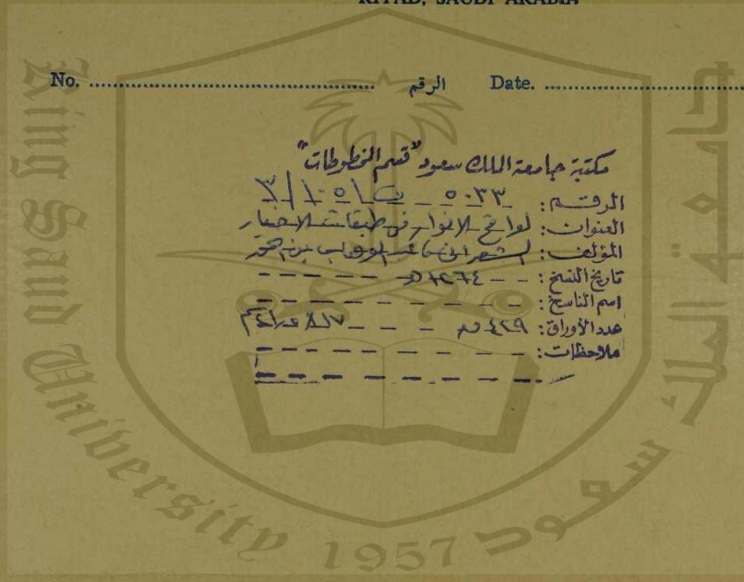 RIYAD, SAUDI ARABIA
No. ........................................ الرقم Date. ........................................
مكتبة جامعة الملك سعود "قسم المخطوطات"
الرقم: ٥٠٣٣
العنوان: لواقح الأنوار في طبقات الأخيار
المؤلف: الشعراني، عبد الوهاب بن أحمد
تاريخ النسخ: ١٢٦٤هـ
اسم الناسخ:
عدد الأوراق: ٤٢٩
ملاحظات:
King Saud University
1957
جامعة الملك سعود